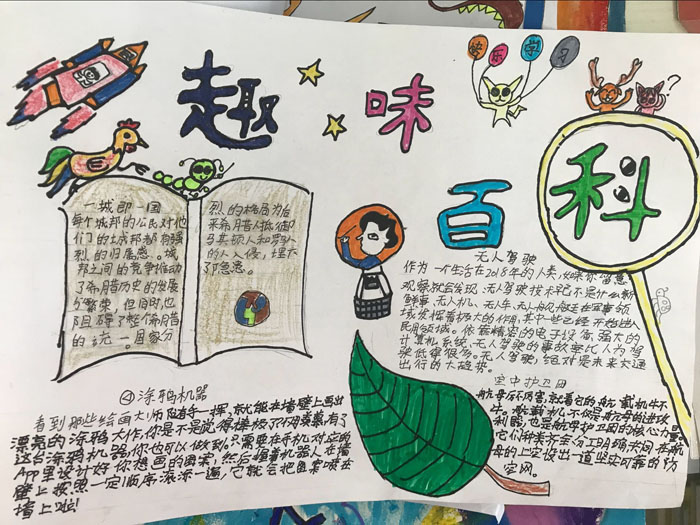 趣味
百科
快乐学习
?
一城即一国
每个城邦的公民对他
们的城邦都有强
烈的归属感。城
邦之间的竞争推动
了希腊历史的发展
与繁荣，但同时也
阻碍了整个希腊
的统一。国家分
烈的格局为后
来希腊人抵御
马其顿人和罗马
人入侵，埋下
了隐患。
无人驾驶
作为一个生活在2018年的人类，如果你留意
观察就会发现，无人驾驶技术已不是什么新
鲜事。无人机、无人车、无人船
域发挥着极大的作用，其中一些已经开始进入
民用领域。依靠精密的电子设备、强大的
计算机系统，无人驾驶的事故率比人为驾
驶低得很多。无人驾驶，绝对是未来交通
出行的大趋势。
空中护卫
航母厉不厉害，就看它的舰载机牛不
牛。舰载机不仅是航母的进攻
利器，也是航母护卫圈的核心力量，
它们种类齐全，分工明确，共同在航
母的上空设下一道坚实可靠的防
空网。
④涂鸦机器
看到那些绘画大师随手一挥，就能在墙壁上画出
漂亮的涂鸦大作，你是不是觉得棒极了？不用羡慕，有了
这台涂鸦机器，你也可以做到。只需要在手机对应的
App里设计好你想画的图案，然后握着机器人在墙
壁上按照一定顺序滚一遍，它就会把图案喷在
墙上啦！